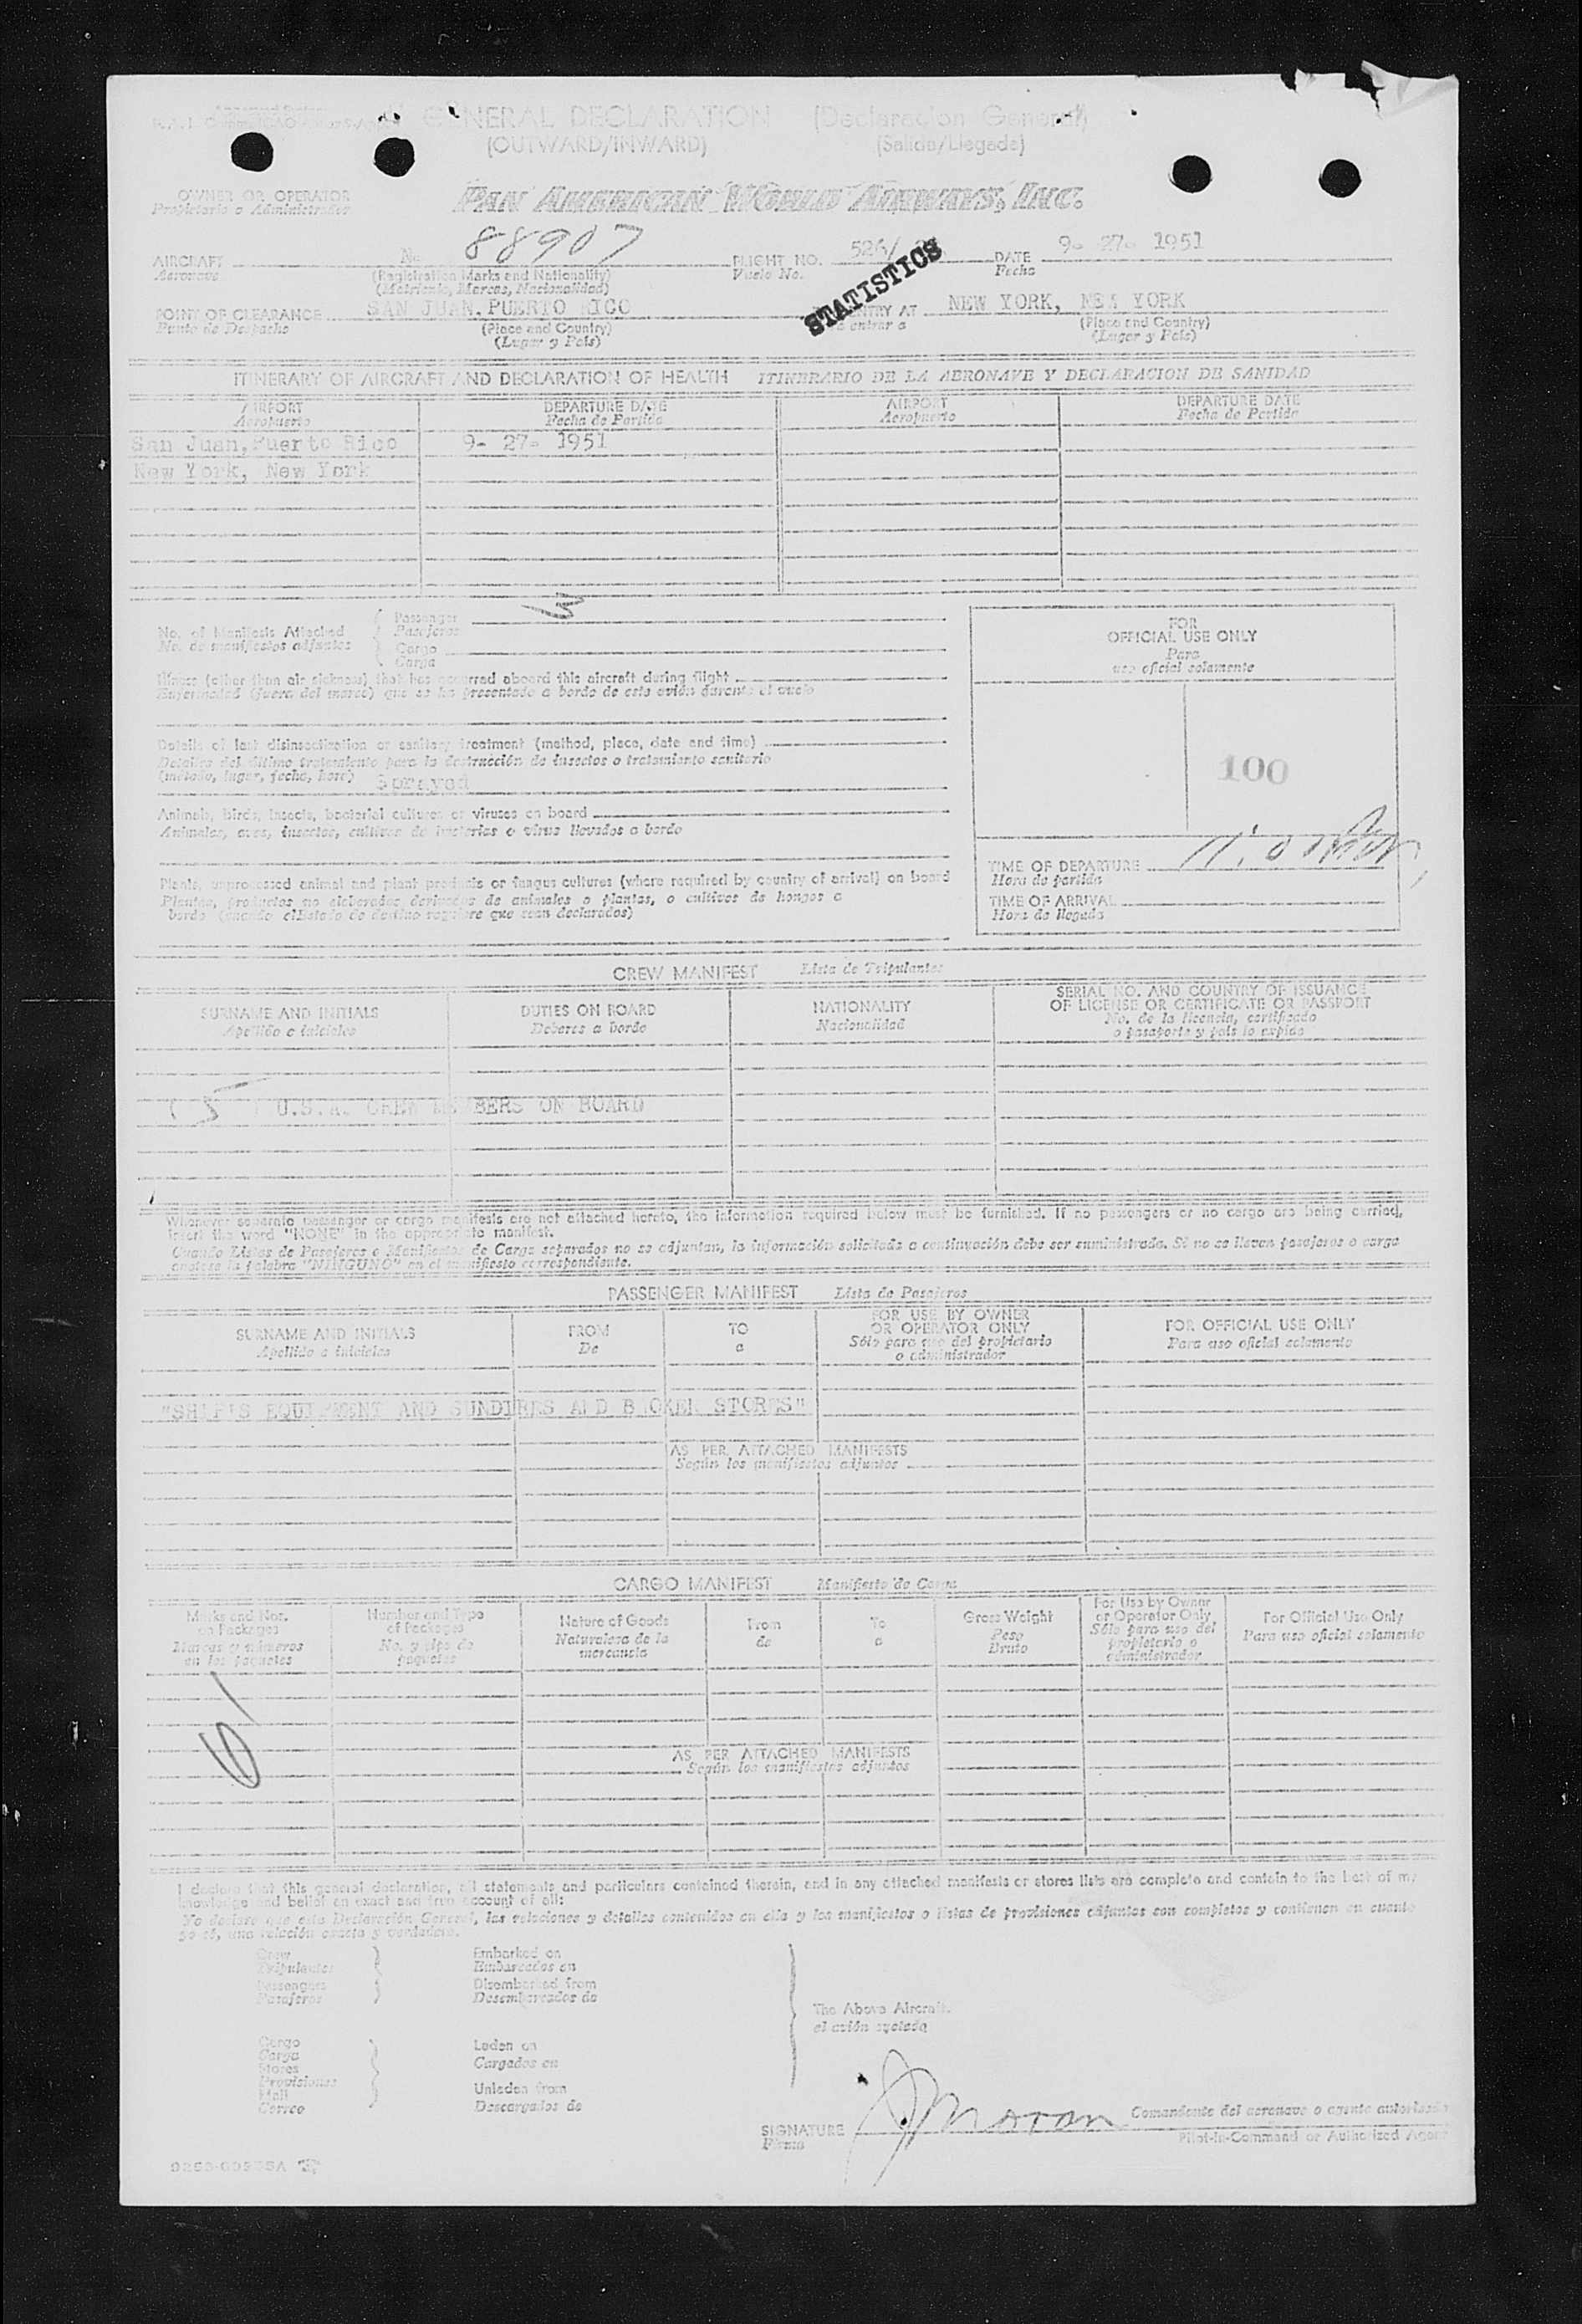 GENERAL DECLARATION (Declaracion General)
(OUTWARD/INWARD) (Salida/Llegada)
OWNER OR OPERATOR PAN AMERICAN WORLD AIRWAYS, INC.
Propietario o Administrador
AIRCRAFT N- 88907 FLIGHT NO. 526/ DATE 9- 27- 1951
Aeronave (Registration Marks and Nationality) Vuelo No. Fecha
(Matricula, Marcas, Nacionalidad)
STATISTICS
POINT OF CLEARANCE SAN JUAN, PUERTO RICO ENTRY AT NEW YORK, NEW YORK
Punto de Despacho (Place and Country) entrar a (Place and Country)
(Lugar y País) (Lugar y País)
ITINERARY OF AIRCRAFT AND DECLARATION OF HEALTH ITINERARIO DE LA AERONAVE Y DECLARACION DE SANIDAD
AIRPORT DEPARTURE DATE AIRPORT DEPARTURE DATE
Aeropuerto Fecha de Partida Aeropuerto Fecha de Partida
San Juan, Puerto Rico 9- 27- 1951
New York, New York
No. of Manifests Attached Passenger 3
No. de manifiestos adjuntos Pasajeros
Cargo
Carga
Illness (other than air sickness) that has occurred aboard this aircraft during flight
Enfermedad (fuera del mareo) que se ha presentado a bordo de este avión durante el vuelo
Details of last disinsectization or sanitary treatment (method, place, date and time)
Detalles del último tratamiento para la destrucción de insectos o tratamiento sanitario
(método, lugar, fecha, hora) Sprayed
Animals, birds, insects, bacterial cultures or viruses on board
Animales, aves, insectos, cultivos de bacterias o virus llevados a bordo
Plants, unprocessed animal and plant products or fungus cultures (where required by country of arrival) on board
Plantas, productos no elaborados derivados de animales o plantas, o cultivos de hongos a
bordo (cuando el Estado de destino requiere que sean declarados)
FOR
OFFICIAL USE ONLY
Para
uso oficial solamente
100
TIME OF DEPARTURE
Hora de partida
TIME OF ARRIVAL
Hora de llegada
CREW MANIFEST Lista de Tripulantes
SURNAME AND INITIALS DUTIES ON BOARD NATIONALITY SERIAL NO. AND COUNTRY OF ISSUANCE
OF LICENSE OR CERTIFICATE OR PASSPORT
Apellido e iniciales Deberes a bordo Nacionalidad No. de la licencia, certificado
o pasaporte y país lo expido
( 5 ) U.S.A. CREW MEMBERS ON BOARD
Whenever separate passenger or cargo manifests are not attached hereto, the information required below must be furnished. If no passengers or no cargo are being carried,
insert the word "NONE" in the appropriate manifest.
Cuando Listas de Pasajeros o Manifiestos de Carga separados no se adjuntan, la información solicitada a continuación debe ser suministrada. Si no se llevan pasajeros o carga
anótese la palabra "NINGUNO" en el manifiesto correspondiente.
PASSENGER MANIFEST Lista de Pasajeros
SURNAME AND INITIALS FROM TO FOR USE BY OWNER
OR OPERATOR ONLY FOR OFFICIAL USE ONLY
Apellido e iniciales De a Sólo para uso del propietario
o administrador Para uso oficial solamente
"SHIP'S EQUIPMENT AND SUNDIRES AND BROKEN STORES"
AS PER ATTACHED MANIFESTS
Según los manifiestos adjuntos
CARGO MANIFEST Manifiesto de Carga
Marks and Nos.
on Packages
Marcas y números
en los paquetes
Number and Type
of Packages
No. y tipo de
paquetes
Nature of Goods
Naturaleza de la
mercancía
From
de
To
a
Gross Weight
Peso
Bruto
For Use by Owner
or Operator Only
Sólo para uso del
propietario o
administrador
For Official Use Only
Para uso oficial solamente
AS PER ATTACHED MANIFESTS
Según los manifiestos adjuntos
I declare that this general declaration, all statements and particulars contained therein, and in any attached manifests or stores lists are complete and contain to the best of my
knowledge and belief an exact and true account of all:
Yo declaro que esta Declaración General, las relaciones y detalles contenidos en ella y los manifiestos o listas de provisiones adjuntos son completos y contienen en cuanto
yo sé, una relación exacta y verdadera.
Crew
Tripulantes
Passengers
Pasajeros
Embarked on
Embarcados en
Disembarked from
Desembarcados de
The Above Aircraft.
el avión
Cargo
Carga
Stores
Provisiones
Mail
Correo
Laden on
Cargados en
Unladen from
Descargados de
SIGNATURE Comandante del aeronave o agente autorizado
Firma Pilot-in-Command or Authorized Agent